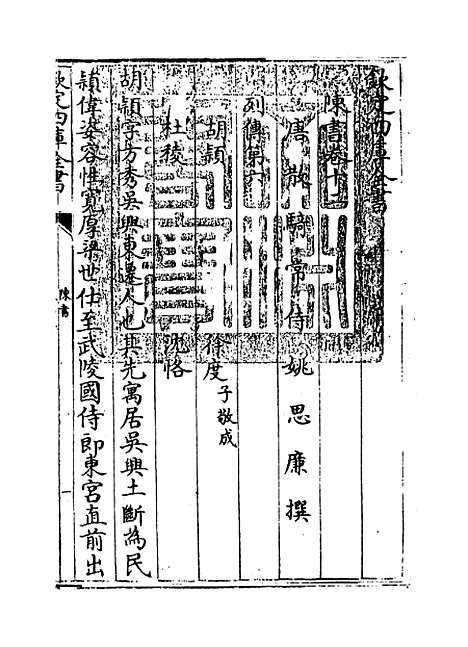 欽定四庫全書
陳書卷十二
唐散騎常侍姚思廉撰
列傳第六
胡頴 徐度子敬成
杜稜 沈恪
胡頴字方秀吳興東遷人也其先寓居吳興土斷為民
頴偉姿容性寛厚梁世仕至武陵國侍郎東宮直前出
欽定四庫全書
陳書
一